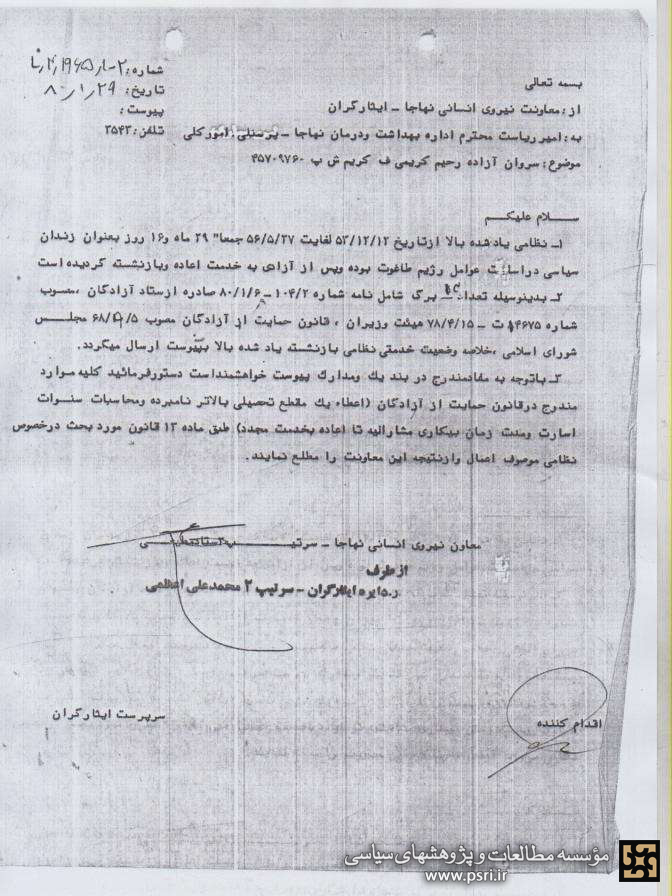 بسمه تعالی
شماره:
تاریخ: ۸۰/۱/۲۹
پیوست:
تلفن: ۳۵۴۳
از: معاونت نیروی انسانی نهاجا – ایثارگران
به: امیر ریاست محترم اداره بهداشت ودرمان نهاجا – پرسنلی، امورکلی
موضوع: سروان آزاده رحیم کریمی ف کریم ش پ ۴۵۷۰۹۷۶۰
ســلام علیکــم
۱ـ نظامی یاد شده بالا ازتاریخ ۵۳/۱۲/۱۲ لغایت ۵۶/۵/۲۷ جمعا" ۲۹ ماه و۱۶ روز بعنوان زندان
سیاسی در عوامل رژیم طاغوت بوده وپس از آزادی به خدمت اعاده وبازنشسته گردیده است
۲ـ بدینوسیله تعداد برگ شامل نامه شماره ۱۰۴/۲ – ۸۰/۱/۶ صادره ازستاد آزادگان ،مصوب
شماره ت – ۷۸/۴/۱۵ هیئت وزیران ، قانون حمایت از آزادگان مصوب مجلــس
شورای اسلامی ،خلاصه وضعیت خدمتی نظامی بازنشسته یاد شده بالا بپیوست ارسال میگردد.
۳ـ باتوجه به مفادمندرج در بند یك ومدارك پیوست خواهشمنداست دستورفرمائید کلیه موارد
مندرج درقانون حمایت از آزادگان (اعطاء یك مقطع تحصیلی بالاتر نامبرده ومحاسبات سنـوات
اسارت ومدت زمان بیکاری مشارالیه تا اعاده بخدمت مجدد) طبق ماده ۱۳ قانون مورد بحث درخصوص
نظامی موصوف اعمال وازنتیجه این معاونت را مطلع نمایند.
معاون نیروی انسانی نهاجا – سرتیـــپ
ازطرف
ر.دایره ایثارگران – سرتیپ ۲ محمدعلی اعظمی
اقدام کننده
سرپرست ایثارگران
مؤسسه مطالعات و پژوهشهای سیاسی
www.psri.ir